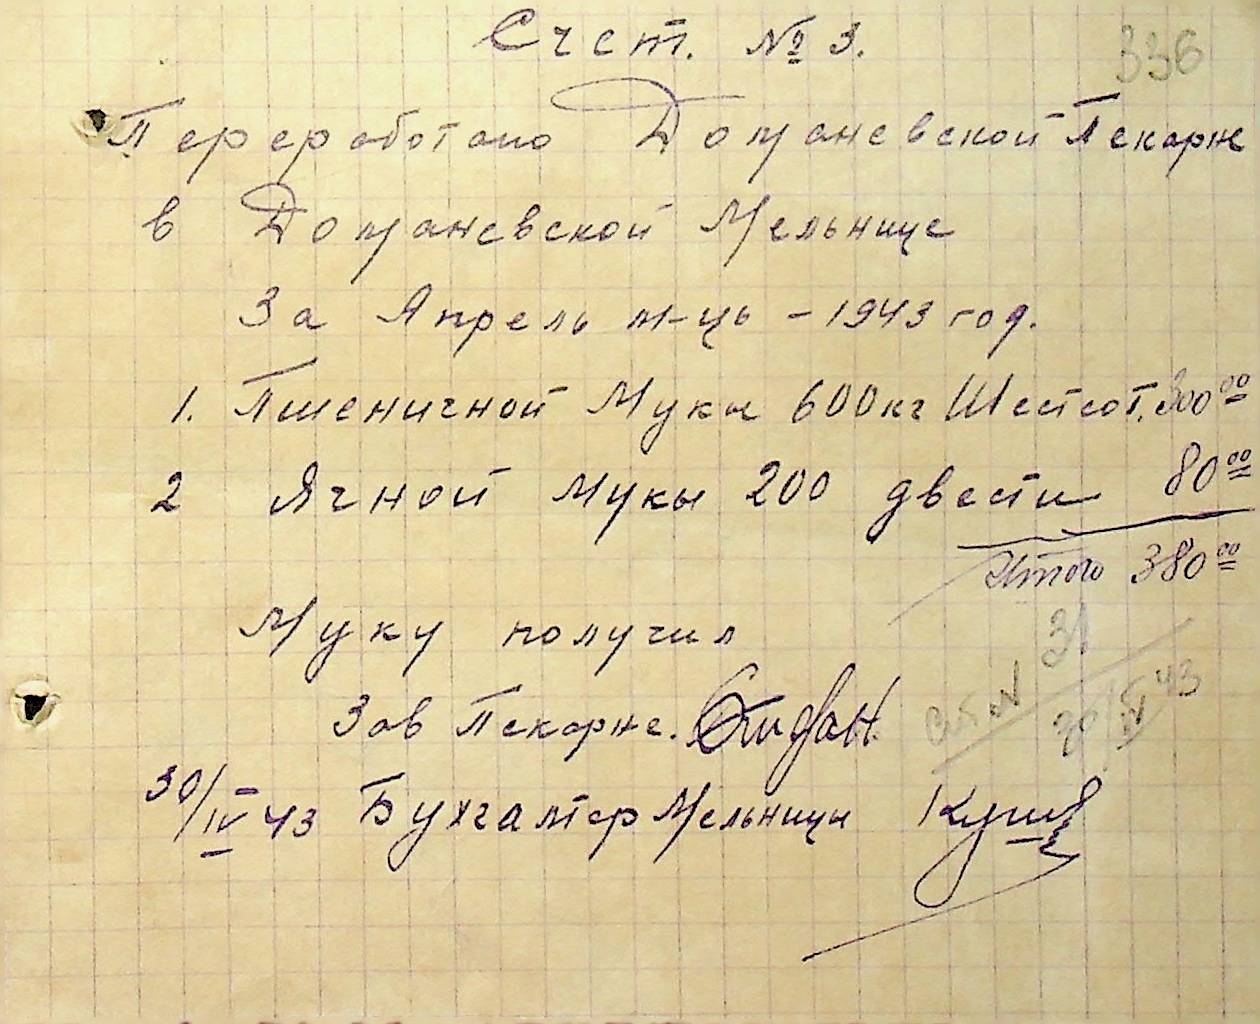 Счет. № 3.
336
Переработано Доманевской Пекарне
в Доманевской Мельнице
За Апрель м-ць - 1943 год.
1. Пшеничной Муки 600кг Шестсот. 300 00
2 Ячной муки 200 двести 80 00
Итого 380 00
Муку получил
31
Зав Пекарне.
30/IV 43
30/IV 43 Бухгалтер Мельницы